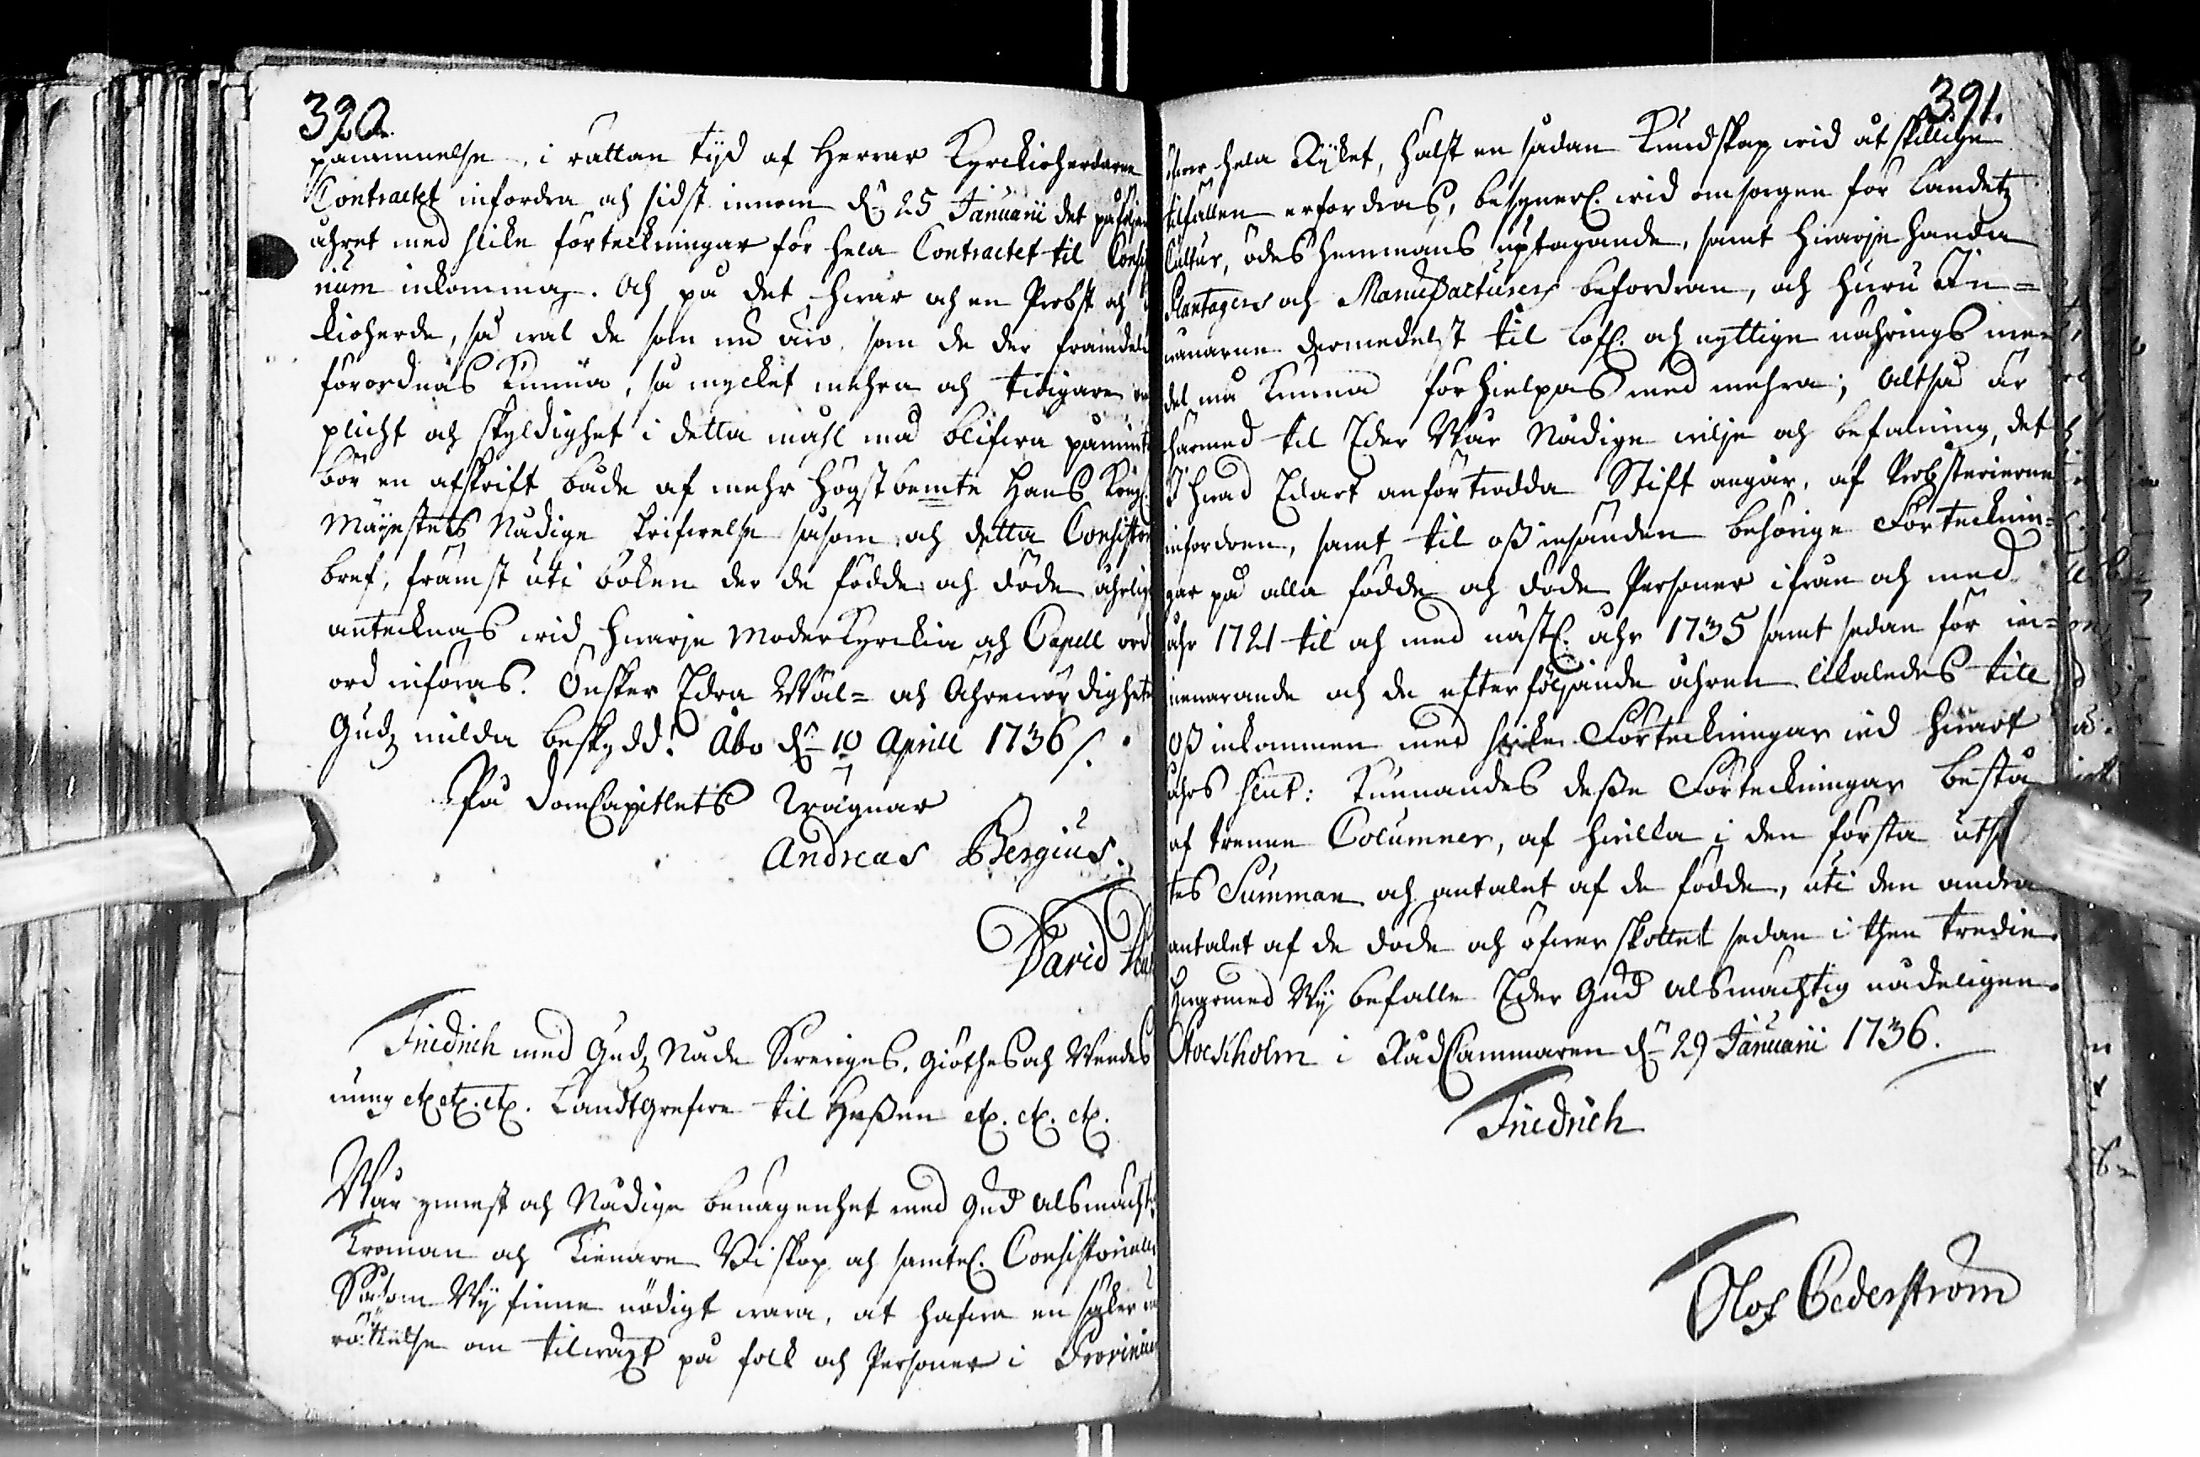 390.
påminnelse, i rättan tijd af Herrar Kyrckioherdarne
Contractet infordra och sidst innom d. 25 Januarii det påföljan
åhret med slike förteckningar för hela Contractet til Consi
rium inkomma. Och på det hwar och en Probst och
kioherde, så wäl de som nu äro, som de der framdeles
förordnas kunna, så mycket mehra och tidigare
plicht och skyldighet i detta mahl må blifwa påmint
bör en afskrift både af mehr högstbemte Hans Kongl.
Mayestets Nådige skrifwelse såsom och detta Consistorii
bref, främst uti boken der de födde och döde åhrlig
antecknas wid hwarje Moderkyrckia och Capell ord
ord införas. Önsker Edra Wäl= och Ährewördigheter
Gudz milda beskydd. Åbo d. 10 Aprill 1736.
På DomCapitlets Wägnar
Andreas Bergius.
David
Friedrich med Gudz Nåde Sweriges, Giöthes och Wendes
nung etc. etc. etc. Landtgrefwe til Hessen etc. etc. etc.
Wår ynnest och Nådige benägenhet med Gud alsmächt:
Troman och Tienare Biskop och samtel. Consistoriales
Såsom Wij finne nödigt wara, at hafwa en säker un
rättelse om tilwäxt på folk och Personer i Provincier
391.
öfwer hela Rijket, hälst en sådan kundskap wid åtskillige
tilfällen erfordras, besynnerl. wid omsorgen för Landetz
Cultur, ödes hemmans uptagande, samt hwarje handa
Plantagers och Manufacturers befordran, och huru In=
wånarne dermedelst til lofl. och nyttige nährings me
del må kunna förhielpas med mehra; Altså är
härmed til Eder Wår Nådige wilje och befalning, det
I hwad Edart anförtrodda Stift angår, af Probsterierne
infordren, samt til oss insänden behörige Förtecknin=
gar på alla födde och döde Personer ifrån och med
åhr 1721 til och med nästl. åhr 1735 samt sedan för in=
newarande och de efterföljande åhren likaledes till
Oss inkommen med slike Förteckningar wid hwart
åhrs slut: kunnandes desse Förteckningar bestå
af trenne Columner, af hwilka i den första utsä
tes Summan och antalet af de födde, uti den andra
antalet af de döde och öfwerskottet sedan i then tredie.
Hwarmed Wij befalle Eder Gud alsmächtig nådeligen.
Stockholm i RådCammaren d. 29 Januarii 1736.
Friedrich
Olof Cederström